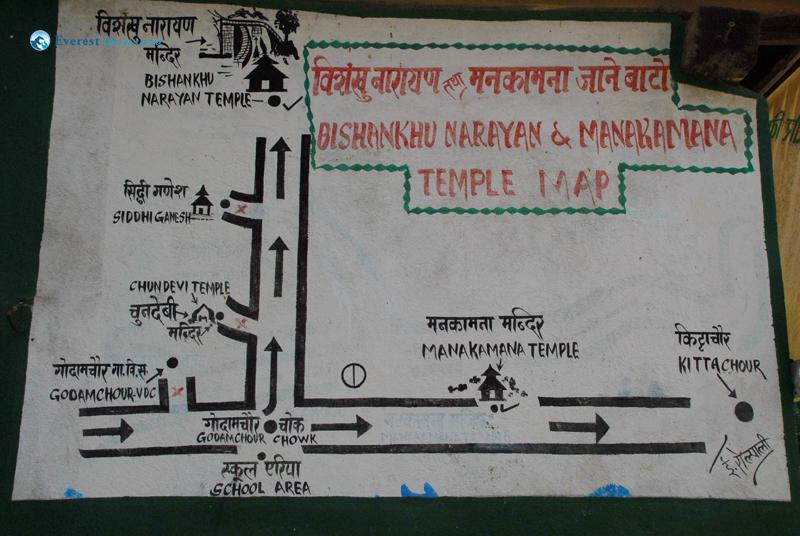 विशंखु नारायण
मन्दिर
Everest
BISHANKHU
NARAYAN TEMPLE
विशंखु नारायण तथा मनकामना जाने बाटो
BISHANKHU NARAYAN & MANAKAMANA
TEMPLE MAP
सिद्धी गणेश
SIDDHI GANESH
CHUNDEVI TEMPLE
चुनदेबी
मन्दिर
गोदामचौर गा.वि.स.
GODAMCHOUR-VDC
मनकामना मन्दिर
MANAKAMANA TEMPLE
किट्टाचौर
KITTACHOUR
गोदामचौर चोक
GODAMCHOUR CHOWK
स्कूल एरिया
SCHOOL AREA